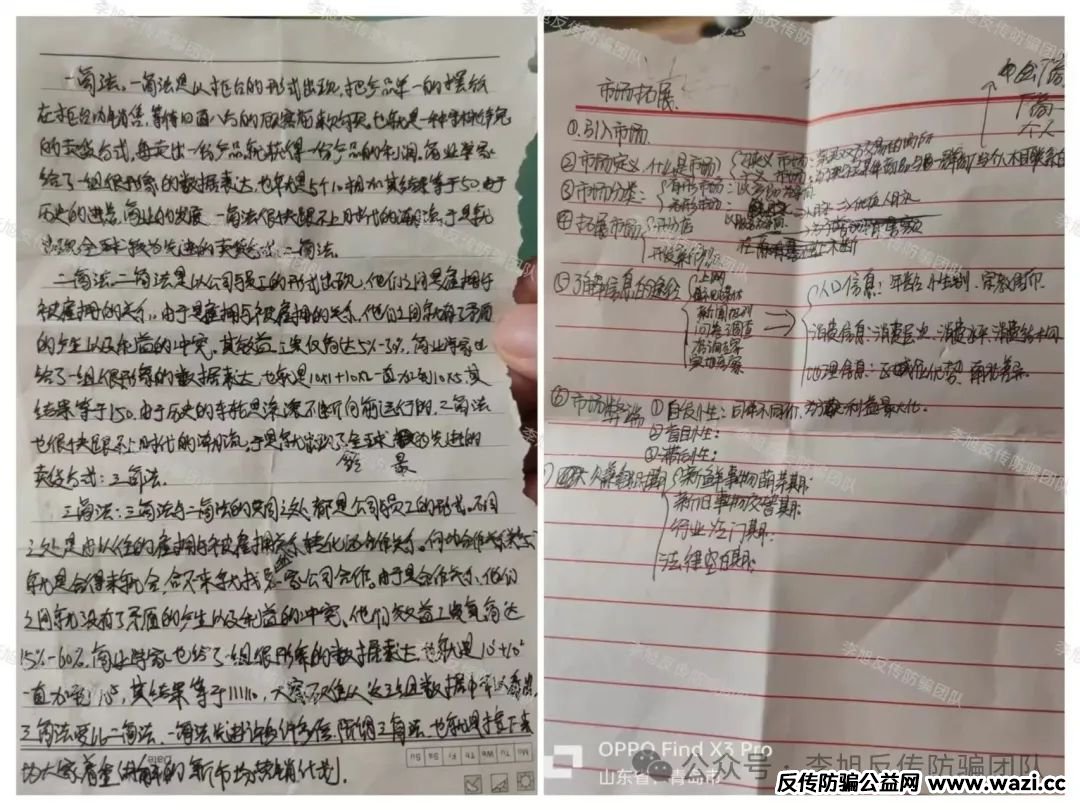 一商法。一商法是以柜台的形式出现，把产品单一的摆放
在柜台内销售，等待四面八方的顾客前来购买，也就是一种守株待兔
的卖货方式，每卖出一份产品就获得一份产品的利润。商业学家
给了一组很形象的数据表达，也就是5个10相加其结果等于50。由于
历史的进步，商业的发展，一商法很快跟不上时代的潮流，于是就
出现全球较为先进的卖货方式：二商法。
二商法。二商法是以公司员工的形式出现，他们之间是雇拥与
被雇拥的关系。由于是雇拥与被雇拥的关系，他们之间就有了矛盾
的产生以及利益的冲突。其效益上只仅高达5%-30%，商业学家也
给了一组很形象的数据表达，也就是10x1+10x2一直加到10x5，其
结果等于150。由于历史的车轮是滚滚不断向前运行的，二商法
也很快跟不上时代的潮流，于是就出现了全球最的先进的
卖货方式：三商法。
三商法：三商法与二商法的共同之处都是公司员工的形式。不同
之处是由以往的雇拥与被雇拥关系转化为合作关系。何为合作关系
就是合得来就合，合不来就找另一家公司合作。由于是合作关系，他们
之间就没有了矛盾的产生以及利益的冲突。他们效益上竟高达
15%-60%。商业学家也给了一组很形象的数据表达，也就是10¹+10²
一直加到10⁵，其结果等于111110，大家不难从这三组数据中可以看出，
三商法要比二商法、一商法先进许多许多倍，所谓三商法，也就是接下来
为大家着重讲解的新市场营销计划。
Mo Tu We Th Fr Sa Su
Date
市场拓展
个人
①引入市场
②市场定义 什么是市场
③市场分类：
④拓展市场
⑤了解信息的途径
上网
新闻报刊
问卷调查
咨询专家
实地考察
人口信息：年龄 性别 宗教信仰
消费信息：消费层次 消费水平 消费结构
地理信息：区域性优势 南北差异
⑥市场弊端
①自发性：同体不同价，为了获利益最大化
②盲目性：
③滞后性：
新鲜事物萌芽期
新旧事物交替期
行业冷门期
法律空白期
OPPO Find X3 Pro
山东省，青岛市
公众号·李旭反传防骗团队
反传防骗公益网 www.wazi.cc
李旭反传防骗团队